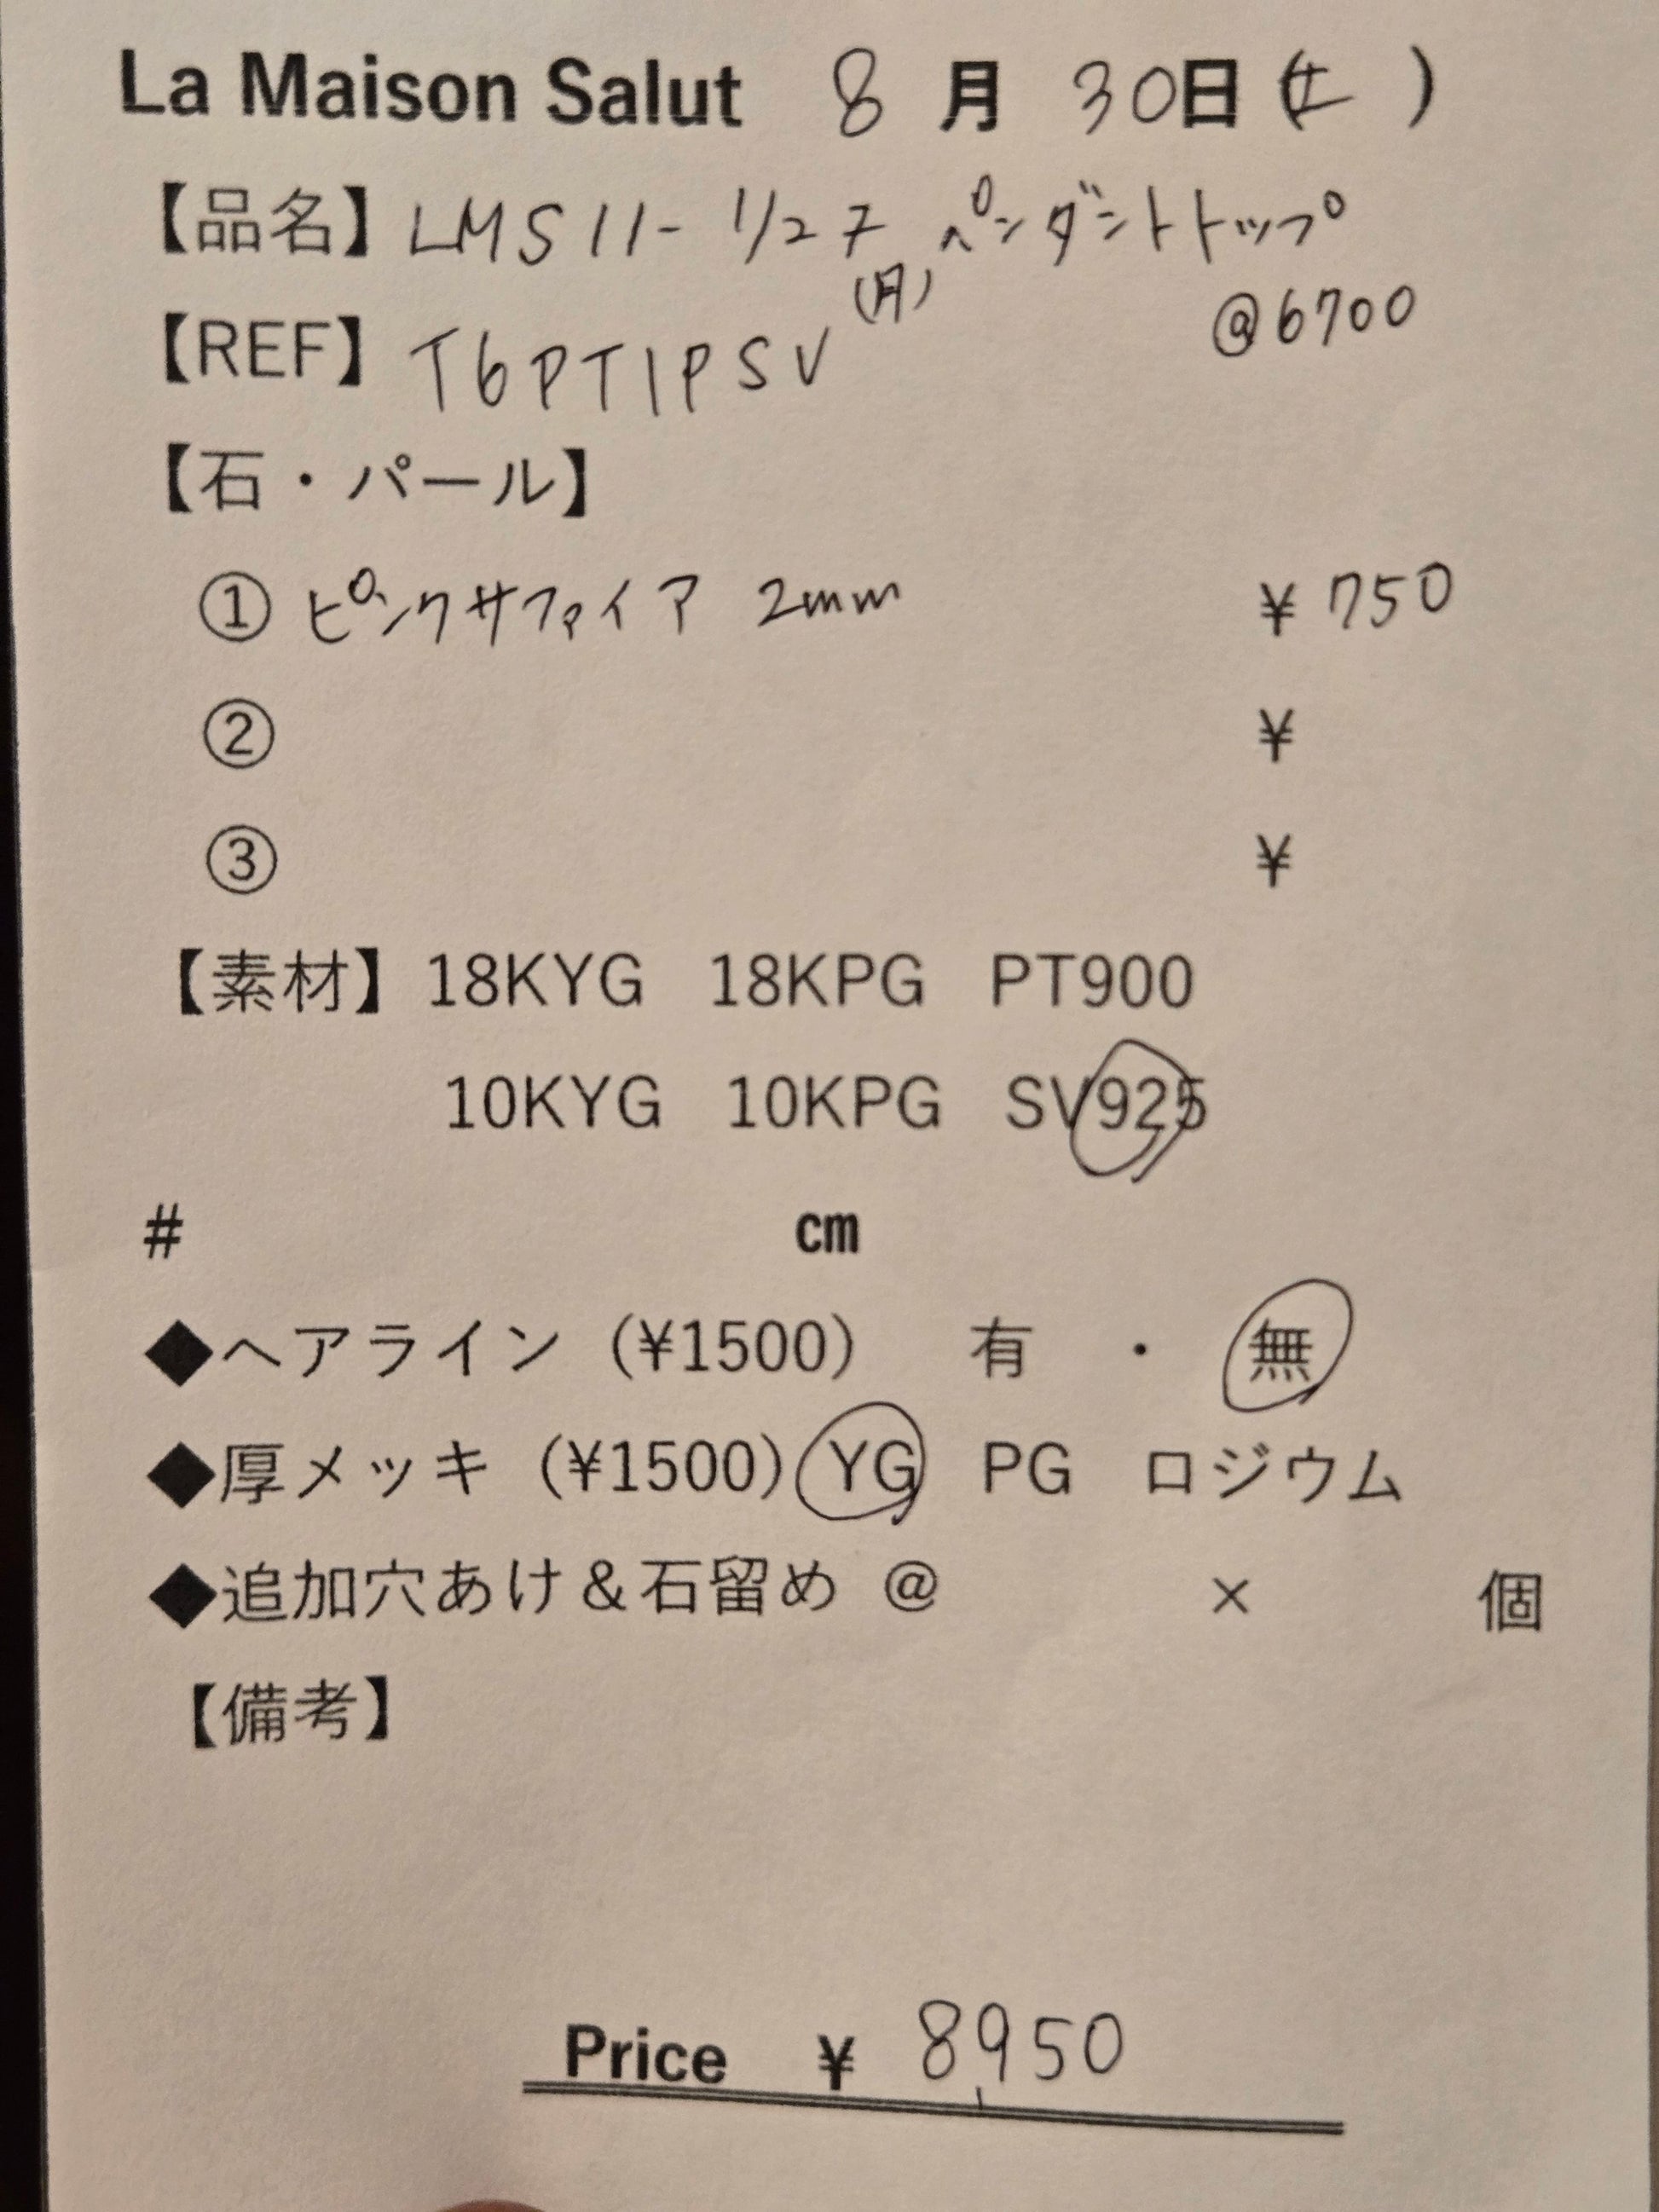 La Maison Salut 8 月 30日 (土 )
【品名】LMS11-1/27 ペンダントトップ
(月)
@6700
【REF】T6PT1PSV
【石・パール】
① ピンクサファイア 2mm ¥ 750
② ¥
③ ¥
【素材】18KYG 18KPG PT900
10KYG 10KPG SV925
# cm
◆ヘアライン (¥1500) 有 ・ 無
◆厚メッキ (¥1500) YG PG ロジウム
◆追加穴あけ&石留め @ × 個
【備考】
Price ¥ 8,950